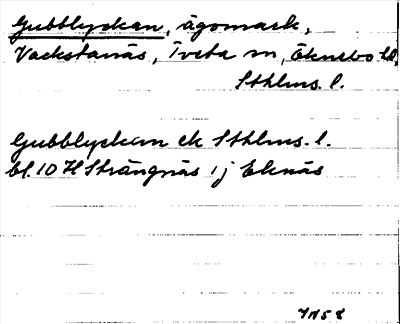 Gubblyckan, ägomark,
Vackstanäs, Tveta sn, Öknebo hd,
Sthlms. l.
Gubblyckan ek Sthlms. l.
bl. 10 H Strängnäs 1 j Eknäs